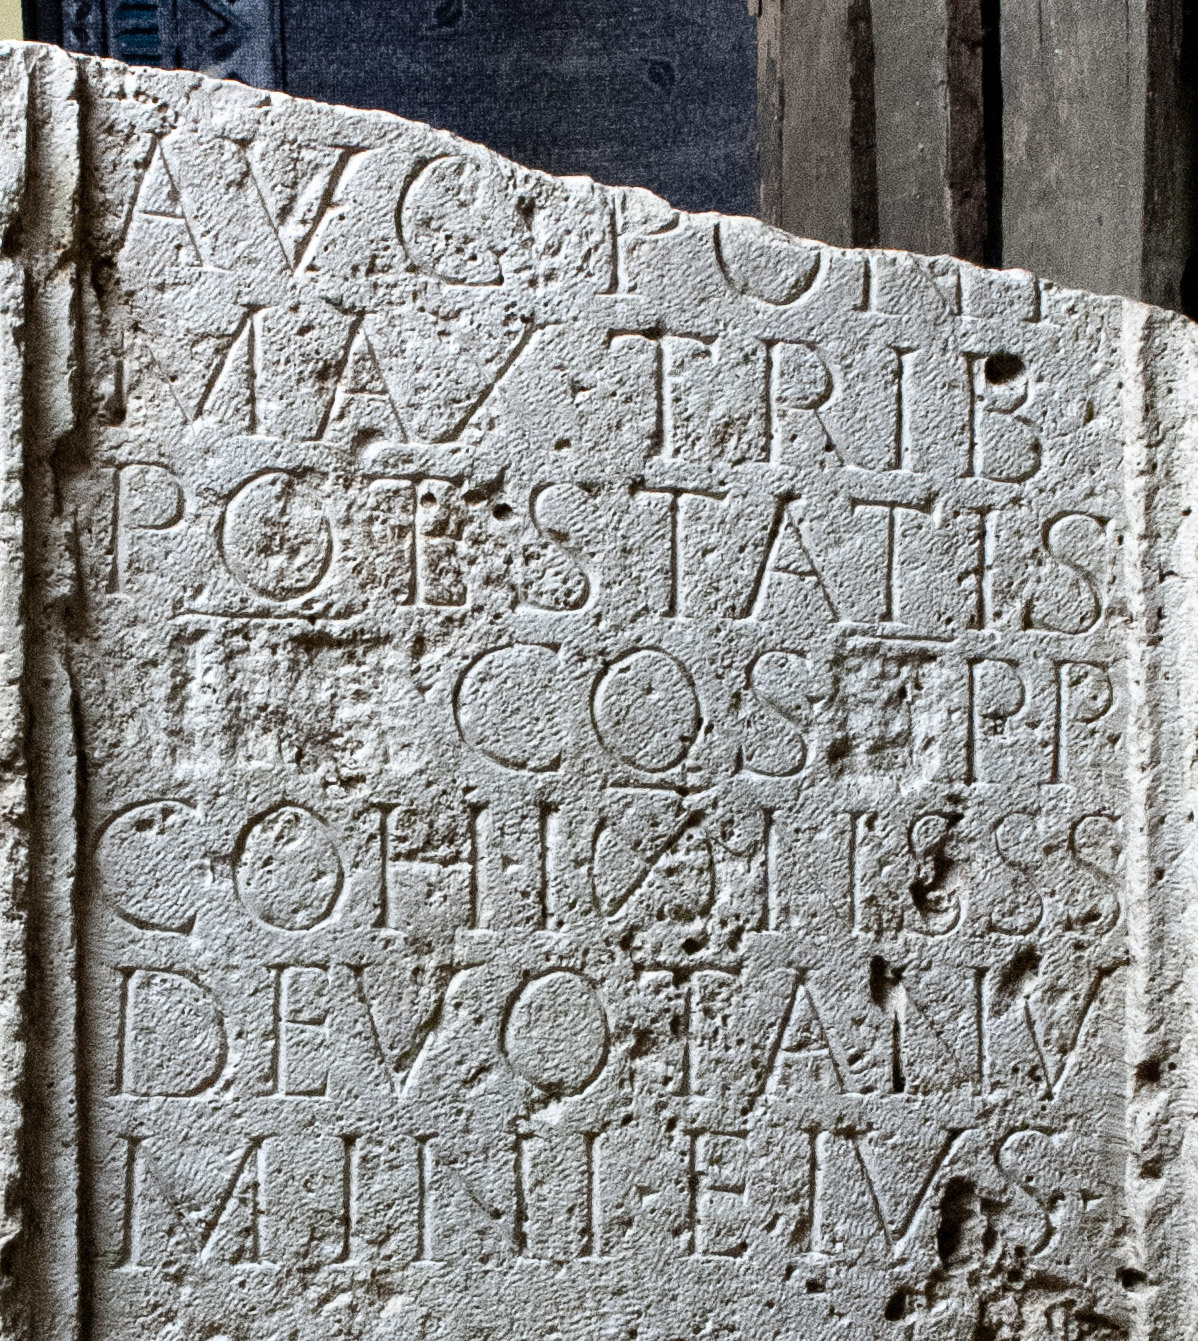 AVG PONT
MAX TRIB
POTESTATIS
III COS II PP
COH I ∞ HISS
DEVOTA NV
MINI EIVS